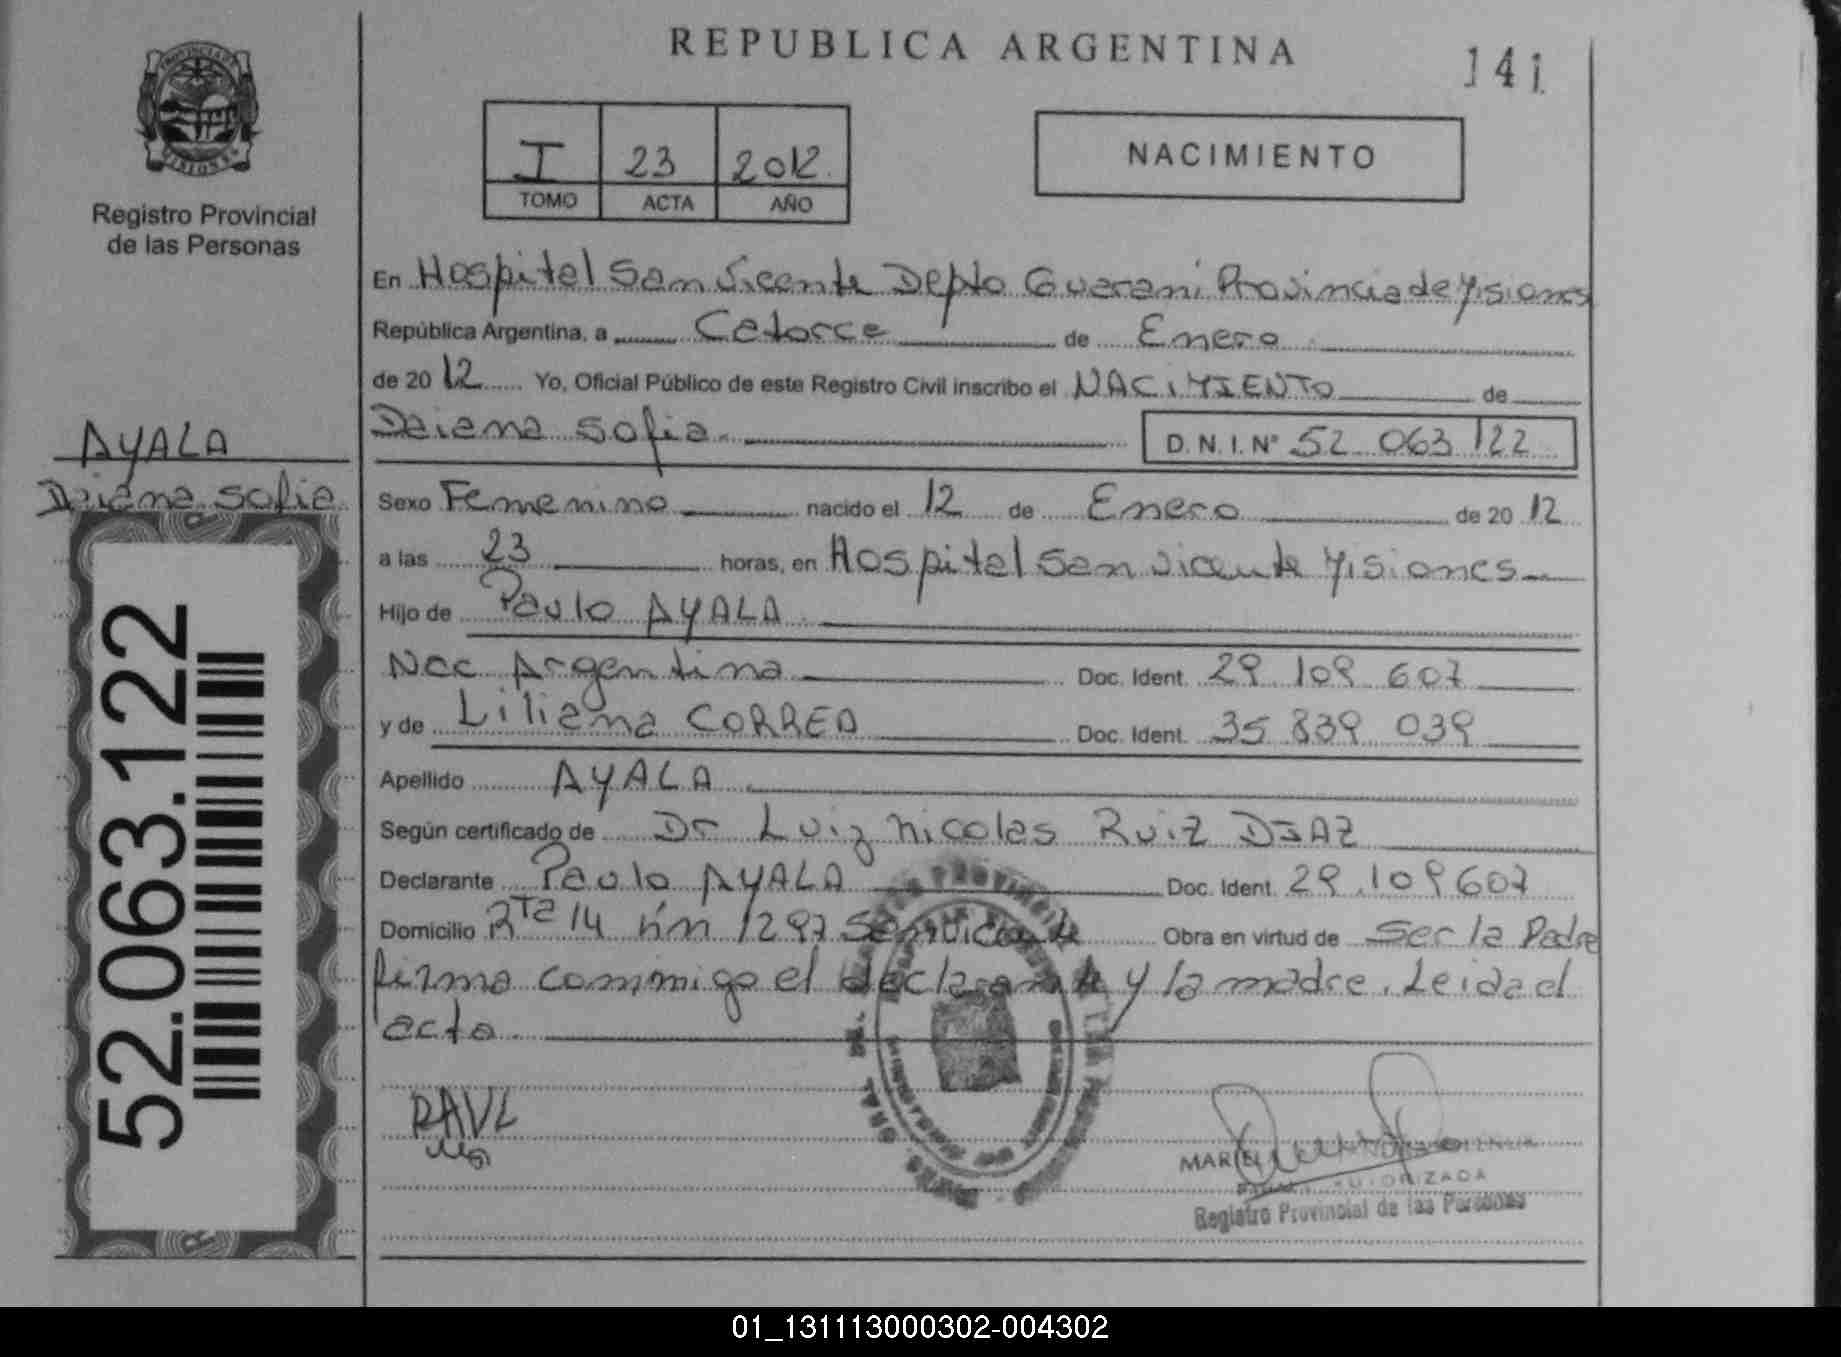 REPUBLICA ARGENTINA
141
PROVINCIA DE MISIONES
Registro Provincial
de las Personas
I 23 2012
TOMO ACTA AÑO
NACIMIENTO
En Hospital San Vicente Depto Guarani Provincia de Misiones
República Argentina, a Catorce de Enero
de 2012 Yo, Oficial Público de este Registro Civil inscribo el NACIMIENTO de
Daiana Sofia D.N.I. Nº 52 063 122
AYALA
Daiana Sofia
Sexo Femenino nacido el 12 de Enero de 2012
a las 23 horas, en Hospital San Vicente Misiones
Hijo de Paulo AYALA
Nac Argentina Doc. Ident. 29 109 607
y de Liliana CORREA Doc. Ident. 35 839 039
Apellido AYALA
Según certificado de Dr Luiz Nicolas Ruiz DIAZ
Declarante Paulo AYALA Doc. Ident. 29.109607
Domicilio Rta 14 km 1297 San Vicente Obra en virtud de Ser la Padre
firma commigo el declarante y la madre. Leida el
acta
52.063.122
MARIEL
AUTORIZADA
Registro Provincial de las Personas
01_131113000302-004302